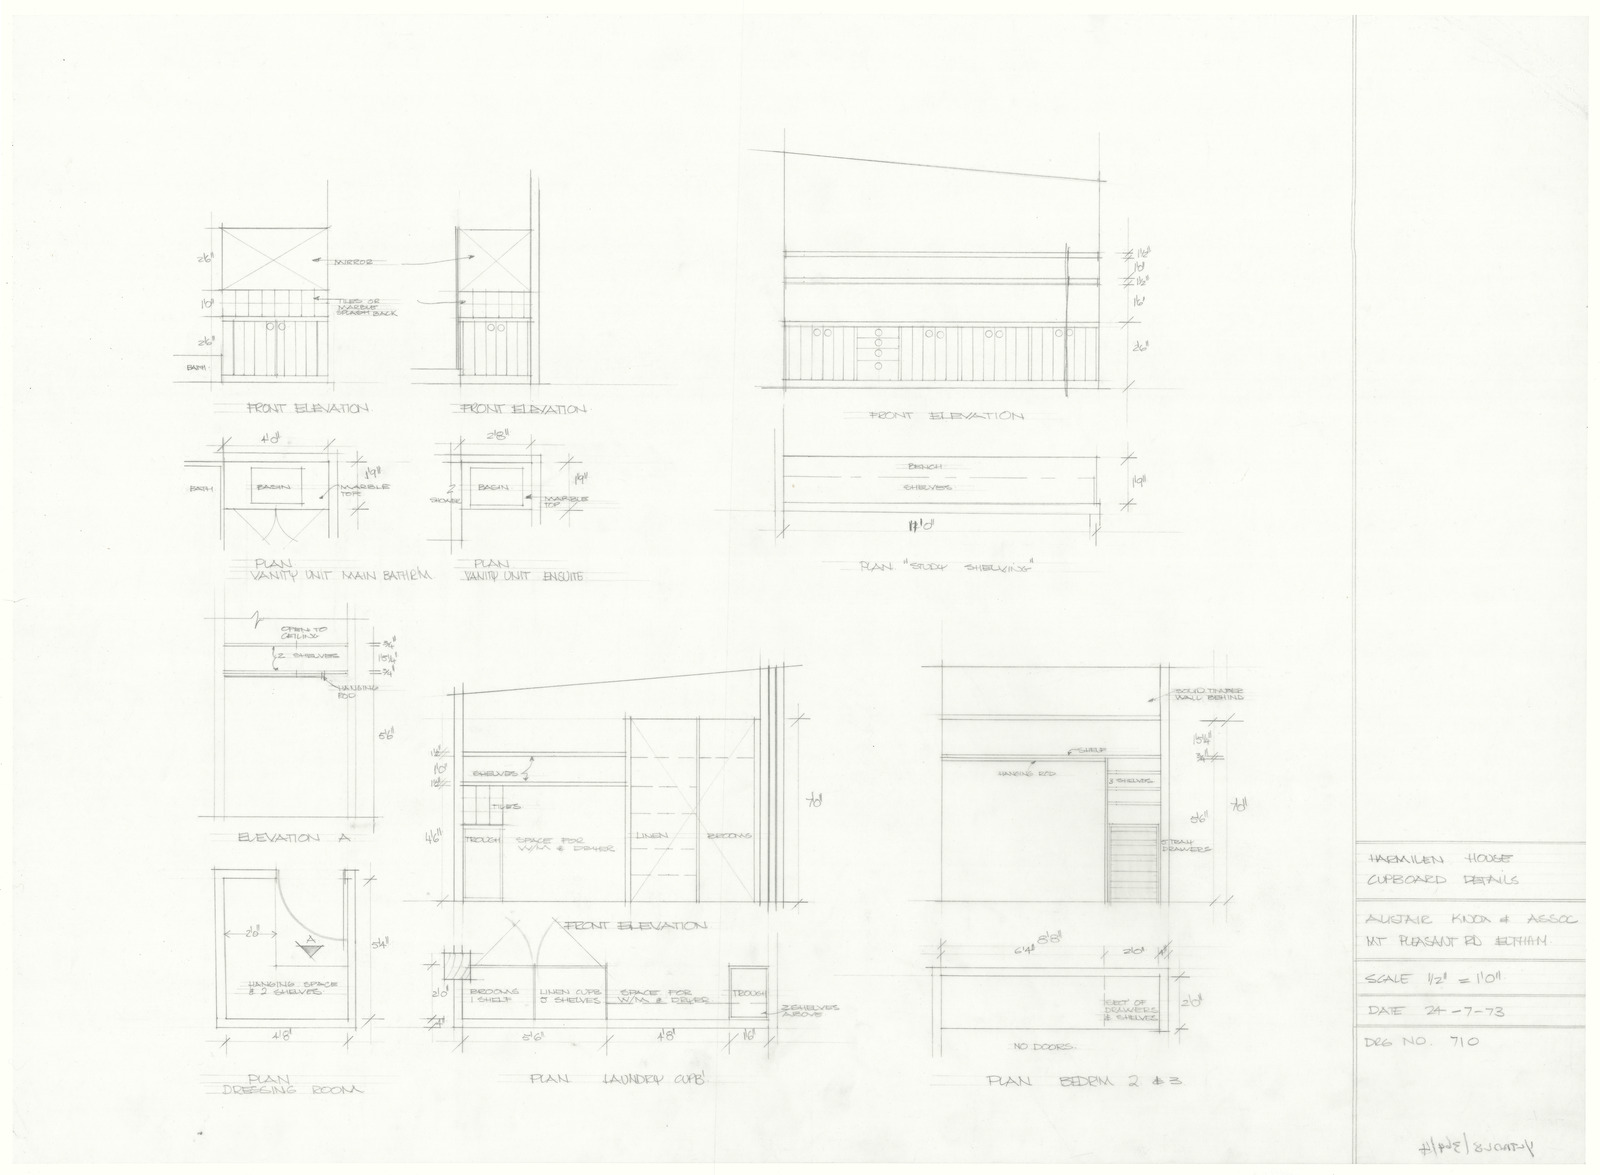 2'6"
1'0"
2'6"
BATH
MIRROR
TILES OR
MARBLE
SPLASH BACK
FRONT ELEVATION
FRONT ELEVATION
4'0"
BATH
BASIN
1'9"
MARBLE
TOP
PLAN
VANITY UNIT MAIN BATHR'M
2'8"
SHOWER
BASIN
1'9"
MARBLE
TOP
PLAN
VANITY UNIT ENSUITE
1½"
1'0"
1½"
1'6"
2'6"
FRONT ELEVATION
BENCH
SHELVES
1'9"
PLAN "STUDY SHELVING"
OPEN TO
CEILING
2 SHELVES
HANGING
ROD
¾"
1'5¼"
¾"
5'6"
ELEVATION A
2'0"
A
HANGING SPACE
& 2 SHELVES
5'4"
4'8"
PLAN
DRESSING ROOM
1½"
1'0"
1½"
4'6"
SHELVES
TILES
TROUGH
SPACE FOR
W/M & DRYER
LINEN
BROOMS
7'0"
FRONT ELEVATION
2'0"
BROOMS
1 SHELF
LINEN CUPB
5 SHELVES
SPACE FOR
W/M & DRYER
TROUGH
2 SHELVES
ABOVE
5'6"
4'8"
1'6"
PLAN LAUNDRY CUPB'
SOLID TIMBER
WALL BEHIND
SHELF
HANGING ROD
3 SHELVES
DRAWERS
1'5¼"
¾"
5'6"
7'0"
8'8"
6'4"
2'0"
SET OF
DRAWERS
& SHELVES
2'0"
NO DOORS
PLAN BEDRM 2 & 3
HARMILEN HOUSE
CUPBOARD DETAILS
ALISTAIR KNOX & ASSOC
MT PLEASANT RD ELTHAM
SCALE 1/2" = 1'0"
DATE 24-7-73
DRG NO. 710